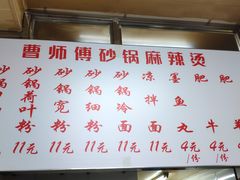 曹师傅砂锅麻辣烫
砂锅荷叶粉 11元
砂锅宽粉 11元
砂锅细粉 11元
砂锅冷面 11元
凉拌面 11元
墨鱼丸 4元/份
肥牛 4元/份
肥